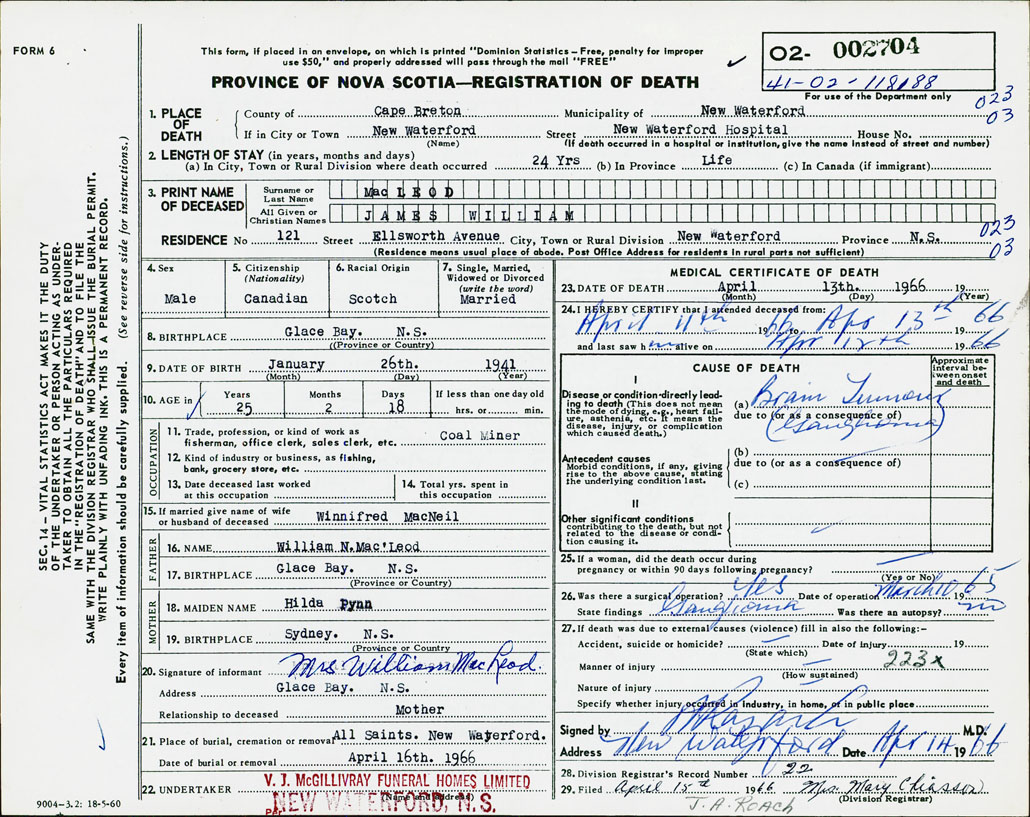 FORM 6
This form, if placed in an envelope, on which is printed "Dominion Statistics—Free, penalty for improper
use $50," and properly addressed will pass through the mail "FREE"
02- 002704
41-02-118188
For use of the Department only
PROVINCE OF NOVA SCOTIA—REGISTRATION OF DEATH
023
03
1. PLACE OF DEATH
County of Cape Breton Municipality of New Waterford
If in City or Town New Waterford Street New Waterford Hospital House No.
(Name) (If death occurred in a hospital or institution, give the name instead of street and number)
2. LENGTH OF STAY (in years, months and days)
(a) In City, Town or Rural Division where death occurred 24 Yrs (b) In Province Life (c) In Canada (if immigrant)
3. PRINT NAME OF DECEASED
Surname or Last Name MacLEOD
All Given or Christian Names JAMES WILLIAM
023
03
RESIDENCE No 121 Street Ellsworth Avenue City, Town or Rural Division New Waterford Province N.S.
(Residence means usual place of abode. Post Office Address for residents in rural parts not sufficient)
4. Sex
Male
5. Citizenship (Nationality)
Canadian
6. Racial Origin
Scotch
7. Single, Married, Widowed or Divorced (write the word)
Married
8. BIRTHPLACE Glace Bay. N.S.
(Province or Country)
9. DATE OF BIRTH January 26th. 1941
(Month) (Day) (Year)
10. AGE in Years 25 Months 2 Days 18 If less than one day old hrs. or min.
OCCUPATION
11. Trade, profession, or kind of work as
fisherman, office clerk, sales clerk, etc. Coal Miner
12. Kind of industry or business, as fishing,
bank, grocery store, etc.
13. Date deceased last worked
at this occupation
14. Total yrs. spent in
this occupation
15. If married give name of wife
or husband of deceased Winnifred MacNeil
FATHER
16. NAME William N.Mac'Leod
17. BIRTHPLACE Glace Bay. N.S.
(Province or Country)
MOTHER
18. MAIDEN NAME Hilda Pynn
19. BIRTHPLACE Sydney. N.S.
(Province or Country
20. Signature of informant Mrs William MacLeod.
Address Glace Bay. N.S.
Relationship to deceased Mother
21. Place of burial, cremation or removal All Saints. New Waterford.
Date of burial or removal April 16th. 1966
22. UNDERTAKER V. J. McGILLIVRAY FUNERAL HOMES LIMITED
(Name and address)
Per NEW WATERFORD, N. S.
MEDICAL CERTIFICATE OF DEATH
23. DATE OF DEATH April 13th. 1966 19
(Month) (Day) (Year)
24. I HEREBY CERTIFY that I attended deceased from:
April 11th 1966 to Apr 13th 66
and last saw him alive on Apr 12th 1966
CAUSE OF DEATH
Approximate interval between onset and death
I
Disease or condition directly leading to death (This does not mean the mode of dying, e.g., heart failure, asthenia, etc. It means the disease, injury, or complication which caused death.)
(a) Brain Tumour
due to (or as a consequence of)
(Ganglioma)
Antecedent causes
Morbid conditions, if any, giving rise to the above cause, stating the underlying condition last.
(b)
due to (or as a consequence of)
(c)
II
Other significant conditions
contributing to the death, but not related to the disease or condition causing it.
25. If a woman, did the death occur during
pregnancy or within 90 days following pregnancy?
(Yes or No)
26. Was there a surgical operation? Yes Date of operation March 10 1965
State findings Ganglioma Was there an autopsy? no
27. If death was due to external causes (violence) fill in also the following:—
Accident, suicide or homicide? Date of injury 19
(State which)
223x
Manner of injury
(How sustained)
Nature of injury
Specify whether injury occurred in industry, in home, or in public place
Signed by M.D.
Address New Waterford Date Apr 14 1966
28. Division Registrar's Record Number 22
29. Filed April 15th 1966 Mrs. Mary Chiasson
(Division Registrar)
J. A. ROACH
SEC. 14 – VITAL STATISTICS ACT MAKES IT THE DUTY
OF THE UNDERTAKER OR PERSON ACTING AS UNDER-
TAKER TO OBTAIN ALL THE PARTICULARS REQUIRED
IN THE "REGISTRATION OF DEATH" AND TO FILE THE
SAME WITH THE DIVISION REGISTRAR WHO SHALL ISSUE THE BURIAL PERMIT.
WRITE PLAINLY WITH UNFADING INK. THIS IS A PERMANENT RECORD.
Every item of information should be carefully supplied. (See reverse side for instructions.)
9004–3.2: 18-5-60